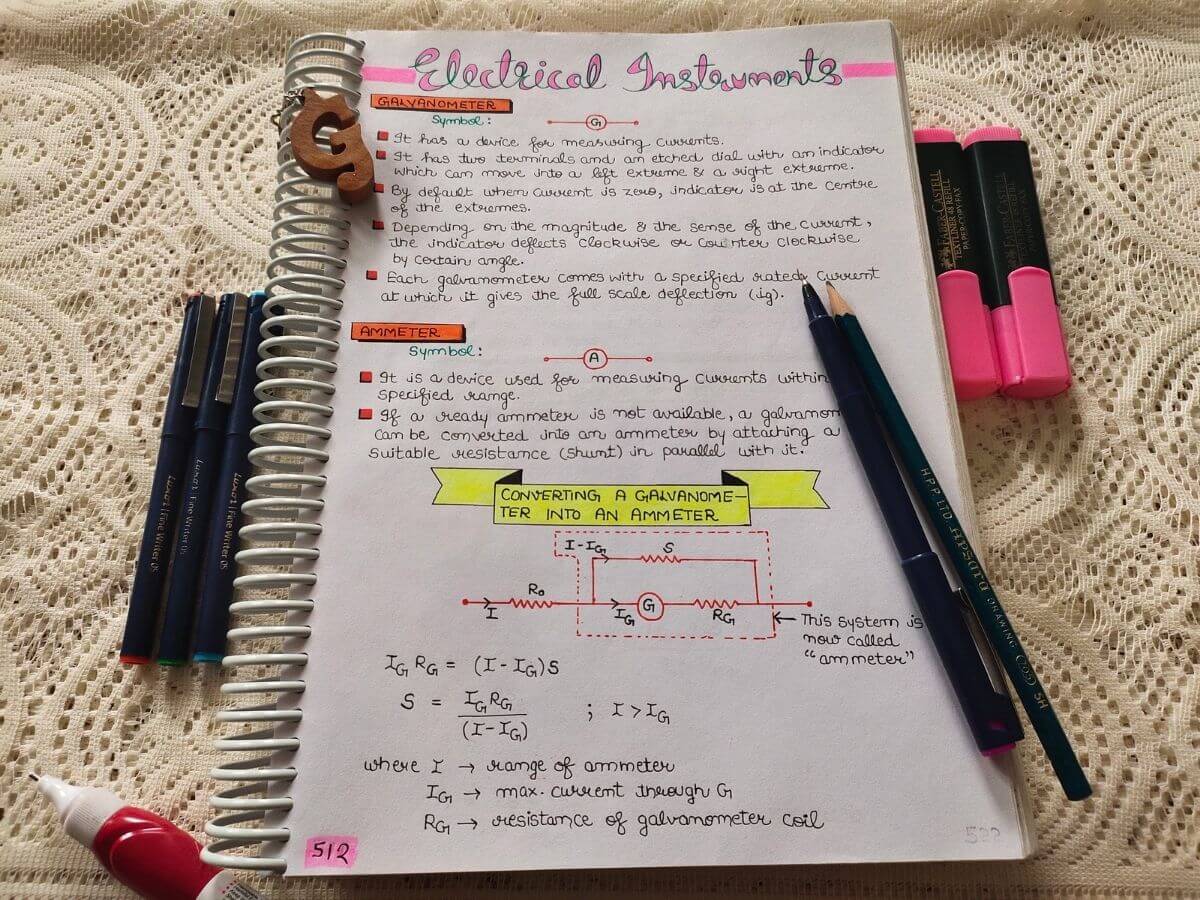 Electrical Instruments
GALVANOMETER
Symbol:
G
It has a device for measuring currents.
It has two terminals and an etched dial with an indicator
which can move into a left extreme & a right extreme.
By default when current is zero, indicator is at the centre
of the extremes.
Depending on the magnitude & the sense of the current,
the indicator deflects clockwise or counter clockwise
by certain angle.
Each galvanometer comes with a specified rated current
at which it gives the full scale deflection (ig).
AMMETER
Symbol:
A
It is a device used for measuring currents within
specified range.
If a ready ammeter is not available, a galvanom
can be converted into an ammeter by attaching a
suitable resistance (shunt) in parallel with it.
CONVERTING A GALVANOME-
TER INTO AN AMMETER
I-IG S
R0
I IG G RG
This system is
now called
"ammeter"
IG RG = (I-IG)S
S = IG RG / (I-IG) ; I > IG
where I → range of ammeter
IG → max. current through G
RG → resistance of galvanometer coil
512
G
Luxor | Fine Writer 05
Luxor | Fine Writer 05
Luxor | Fine Writer 05
FABER-CASTELL
TEXTLINER 48 REFILL
PAPER·COPY·FAX
FABER-CASTELL
TEXTLINER 48 REFILL
PAPER·COPY·FAX
HPP LTD. apsara DRAWING 5H